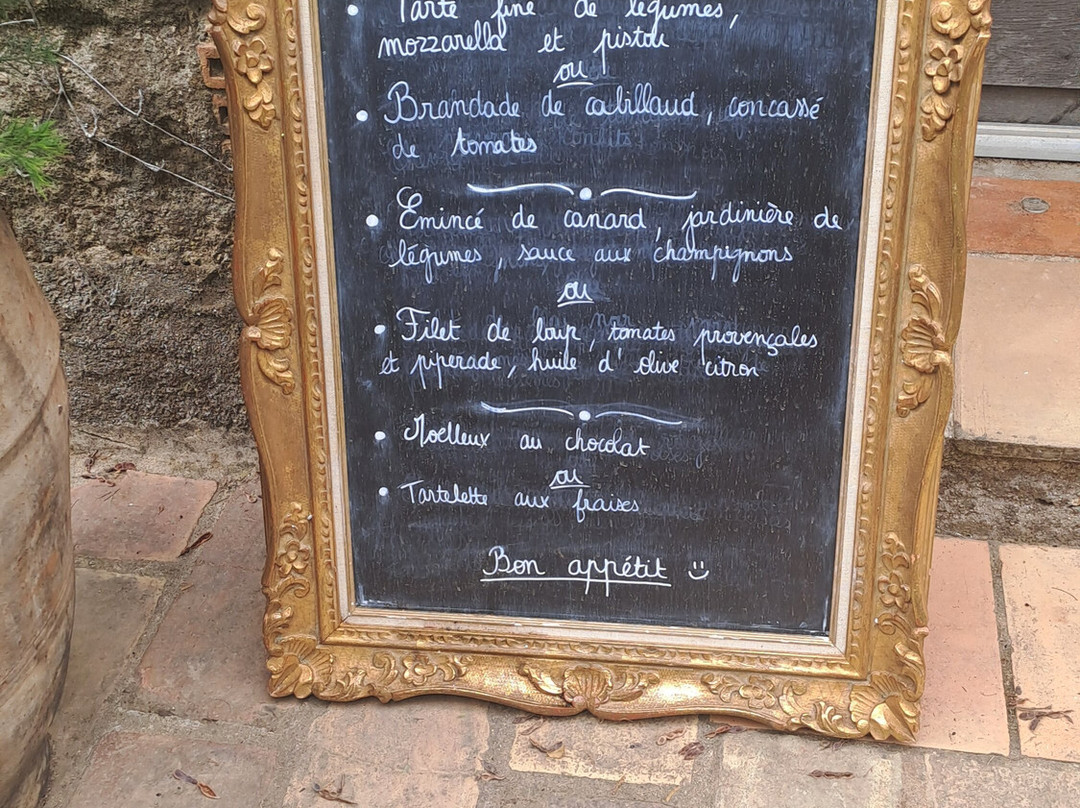 • Tarte fine de légumes,
mozzarella et pistou
ou
• Brandade de cabillaud, concassé
de tomates
• Émincé de canard, jardinière de
légumes, sauce aux champignons
ou
• Filet de loup, tomates provençales
et piperade, huile d'olive citron
• Moelleux au chocolat
ou
• Tartelette aux fraises
Bon appétit :)